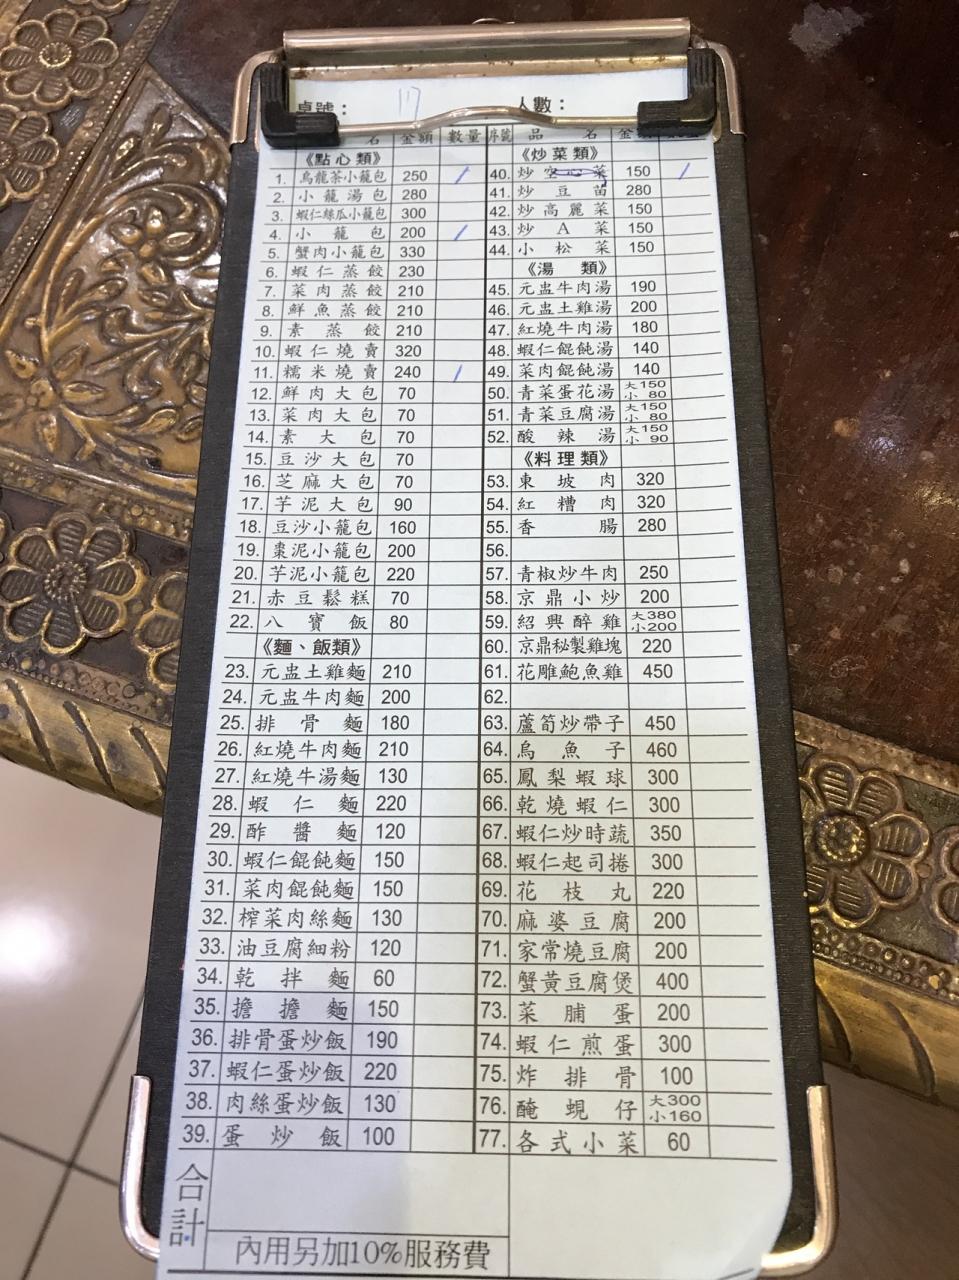 桌號： 人數：
名 金額 數量
《點心類》
1. 烏龍茶小籠包 250 /
2. 小籠湯包 280
3. 蝦仁絲瓜小籠包 300
4. 小籠包 200 /
5. 蟹肉小籠包 330
6. 蝦仁蒸餃 230
7. 菜肉蒸餃 210
8. 鮮魚蒸餃 210
9. 素蒸餃 210
10. 蝦仁燒賣 320
11. 糯米燒賣 240 /
12. 鮮肉大包 70
13. 菜肉大包 70
14. 素大包 70
15. 豆沙大包 70
16. 芝麻大包 70
17. 芋泥大包 90
18. 豆沙小籠包 160
19. 棗泥小籠包 200
20. 芋泥小籠包 220
21. 赤豆鬆糕 70
22. 八寶飯 80
《麵、飯類》
23. 元盅土雞麵 210
24. 元盅牛肉麵 200
25. 排骨麵 180
26. 紅燒牛肉麵 210
27. 紅燒牛湯麵 130
28. 蝦仁麵 220
29. 酢醬麵 120
30. 蝦仁餛飩麵 150
31. 菜肉餛飩麵 150
32. 榨菜肉絲麵 130
33. 油豆腐細粉 120
34. 乾拌麵 60
35. 擔擔麵 150
36. 排骨蛋炒飯 190
37. 蝦仁蛋炒飯 220
38. 肉絲蛋炒飯 130
39. 蛋炒飯 100
序號 品名
《炒菜類》
40. 炒空心菜 150 /
41. 炒豆苗 280
42. 炒高麗菜 150
43. 炒A菜 150
44. 小松菜 150
《湯類》
45. 元盅牛肉湯 190
46. 元盅土雞湯 200
47. 紅燒牛肉湯 180
48. 蝦仁餛飩湯 140
49. 菜肉餛飩湯 140
50. 青菜蛋花湯 大150 小 80
51. 青菜豆腐湯 大150 小 80
52. 酸辣湯 大150 小 90
《料理類》
53. 東坡肉 320
54. 紅糟肉 320
55. 香腸 280
56.
57. 青椒炒牛肉 250
58. 京鼎小炒 200
59. 紹興醉雞 大380 小200
60. 京鼎秘製雞塊 220
61. 花雕鮑魚雞 450
62.
63. 蘆筍炒帶子 450
64. 烏魚子 460
65. 鳳梨蝦球 300
66. 乾燒蝦仁 300
67. 蝦仁炒時蔬 350
68. 蝦仁起司捲 300
69. 花枝丸 220
70. 麻婆豆腐 200
71. 家常燒豆腐 200
72. 蟹黃豆腐煲 400
73. 菜脯蛋 200
74. 蝦仁煎蛋 300
75. 炸排骨 100
76. 醃蜆仔 大300 小160
77. 各式小菜 60
合計
內用另加10%服務費